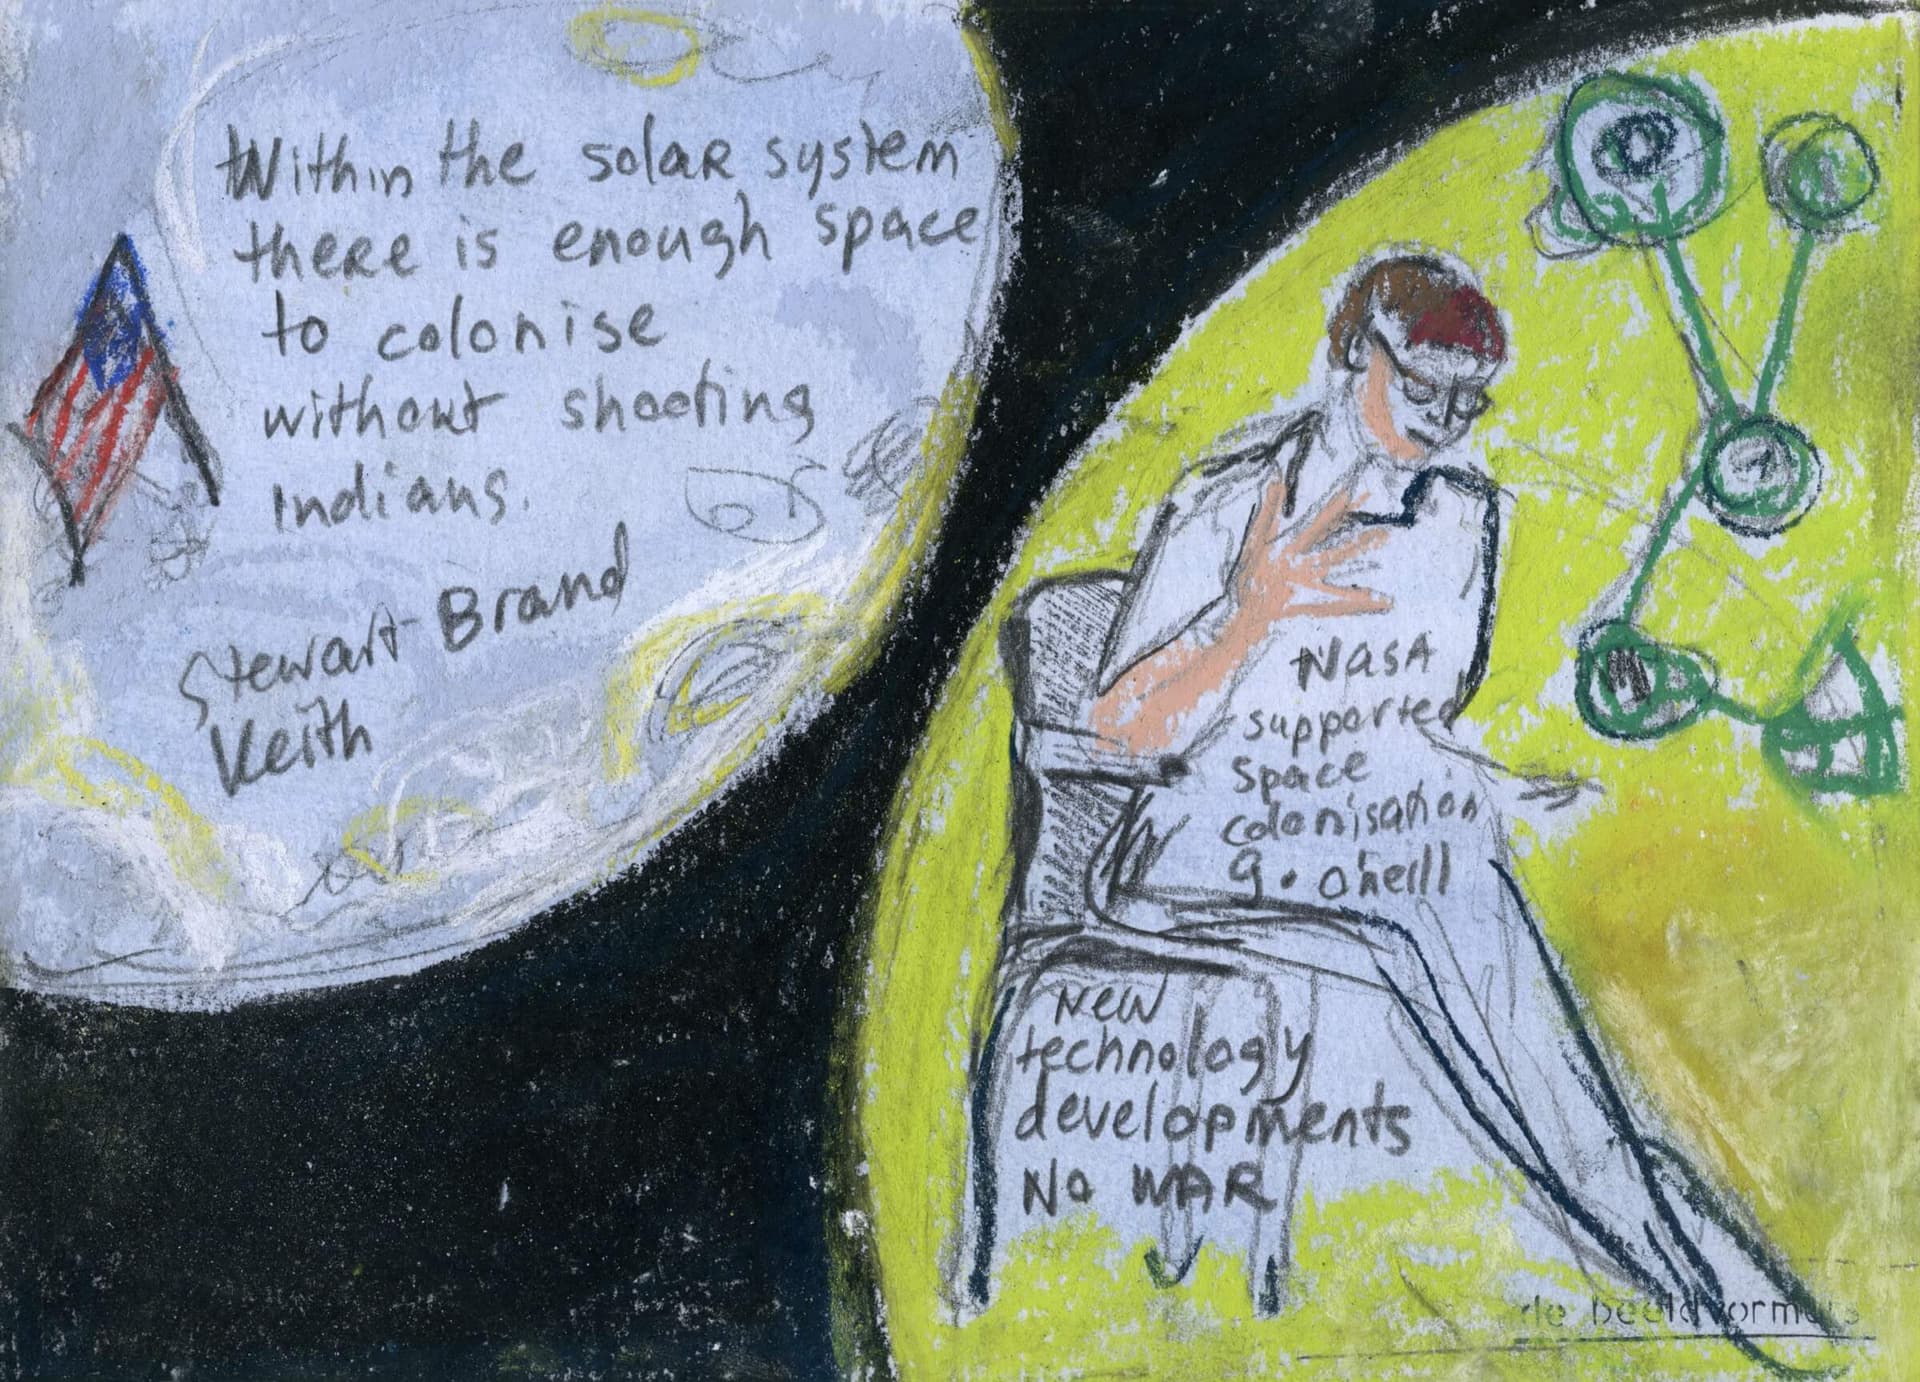 Within the solar system
there is enough space
to colonise
without shooting
Indians.
Stewart Brand
Keith
NASA
supported
space
colonisation
g. oneill
New
technology
developments
No WAR
de beeldvormers